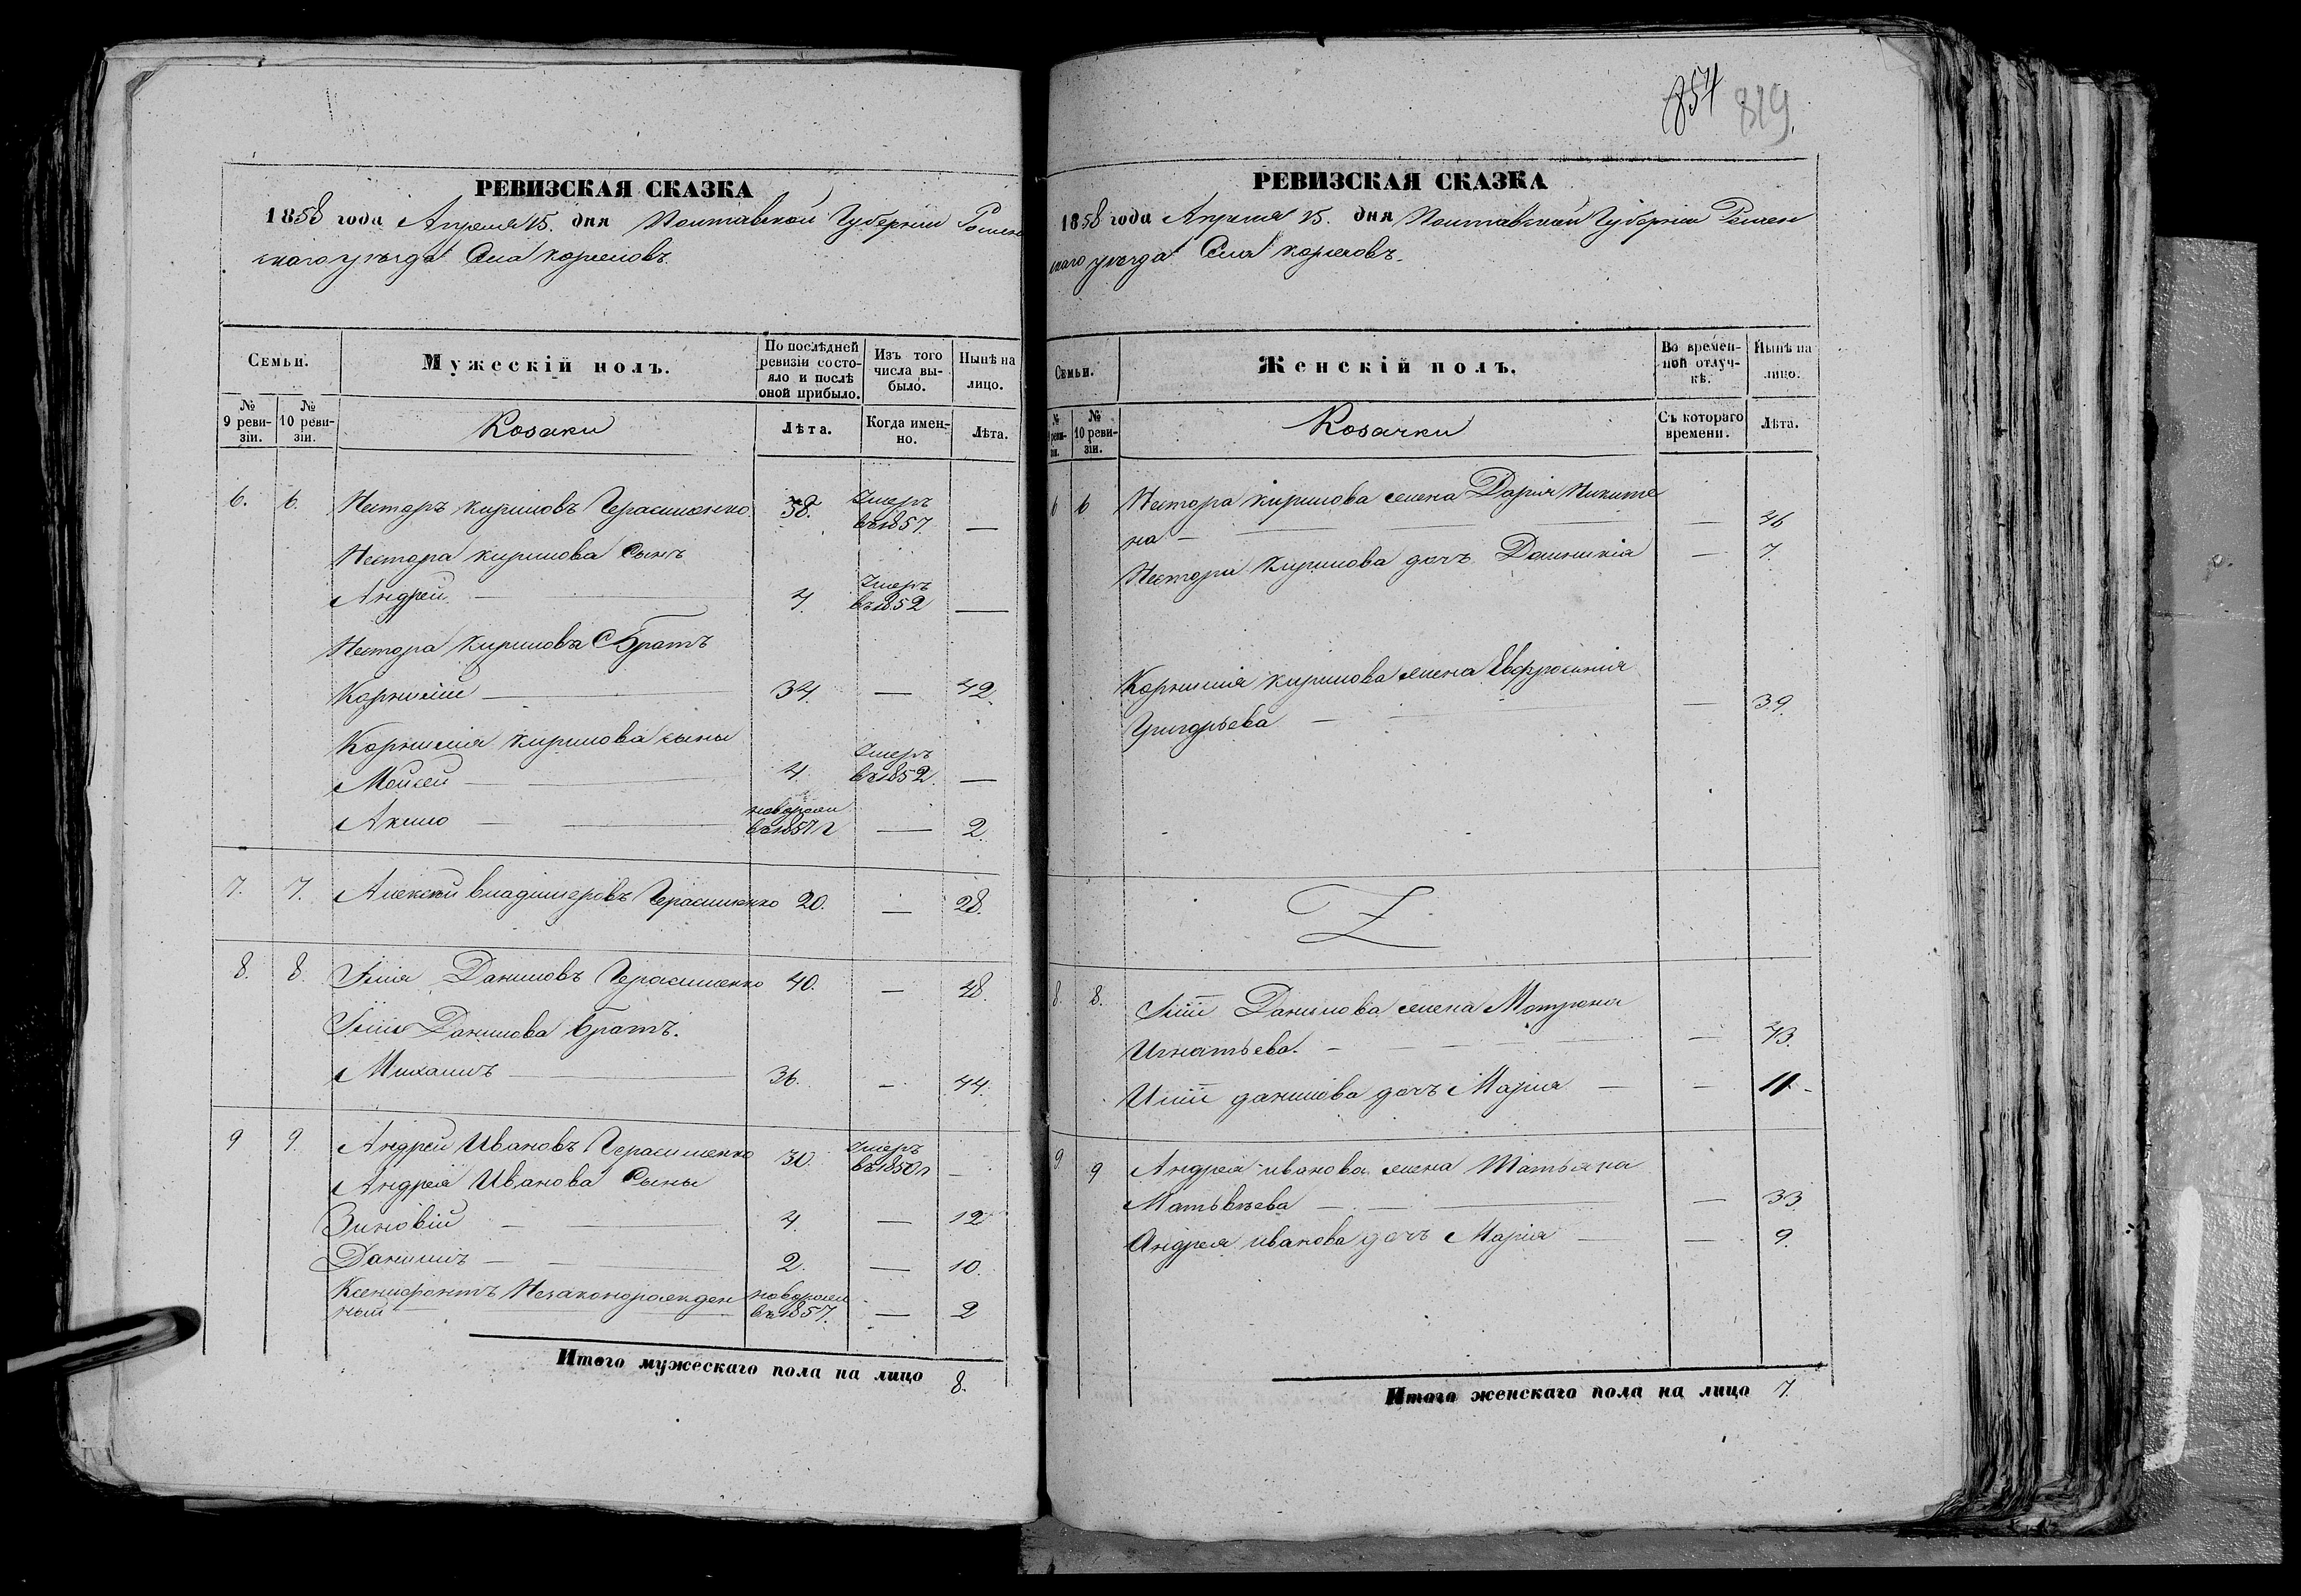 РЕВИЗСКАЯ СКАЗКА
1858 года Апреля 15. дня Полтавской Губернии Ромен
скаго уезда Села Коржовъ.
Семьи.
Мужескій полъ.
По послѣдней
ревизіи состо-
яло и послѣ
оной прибыло.
Изъ того
числа вы-
было.
Нынѣ на
лицо.
№
9 реви-
зіи.
№
10 реви-
зіи.
Козаки
Лѣта.
Когда имен-
но.
Лѣта.
6. 6. Несторъ Кириловъ Герасименко 38. Умеръ въ 1857. —
Нестора Кирилова Сынъ
Андрей — 4. Умеръ въ 1852 —
Нестора Кирилова Братъ
Корнилій — 34. — 42.
Корнилія Кирилова сыны
Мойсей — 4. Умеръ въ 1852. —
Акимъ — новорожд въ 1857 г — 2.
7. 7. Алексей Владимеровъ Герасименко 20. — 28.
8. 8. Илія Даниловъ Герасименко 40. — 48.
Іліи Данилова братъ.
Михаилъ — 36. — 44.
9 9. Андрей Ивановъ Герасименко 30. Умеръ въ 1850 г —
Андрея Иванова Сыны
Зиновій — 4. — 12
Данилъ — 2. — 10.
Ксенофонтъ Незаконорожден новорожд
ный — въ 1857. — 2
Итого мужескаго пола на лицо 8.
854 819.
РЕВИЗСКАЯ СКАЗКА
1858 года Апреля 15. дня Полтавской Губерніи Ромен
скаго уезда Села Коржовъ.
Семьи.
Женскій полъ.
Во времен-
ной отлуч-
кѣ.
Нынѣ на
лицо.
№
9 реви-
зіи.
№
10 реви-
зіи.
Козачки
Съ котораго
времени.
Лѣта.
6 6 Нестора Кирилова жена Дарія Никити
на — — 46
Нестора Кирилова дочъ Домникія — 7.
Корнилія Кирилова жена Евфросинія
Григорьева — — 39.
8. 8. Іліи Данилова жена Мотрона
Игнатьева. — — 43.
Иліи данилова дочъ Марія — — 11.
9 9 Андрея иванова жена Татьяна
Матьвѣева — — 33
Андрея иванова дочъ Марія — — 9.
Итого женскаго пола на лицо 7.